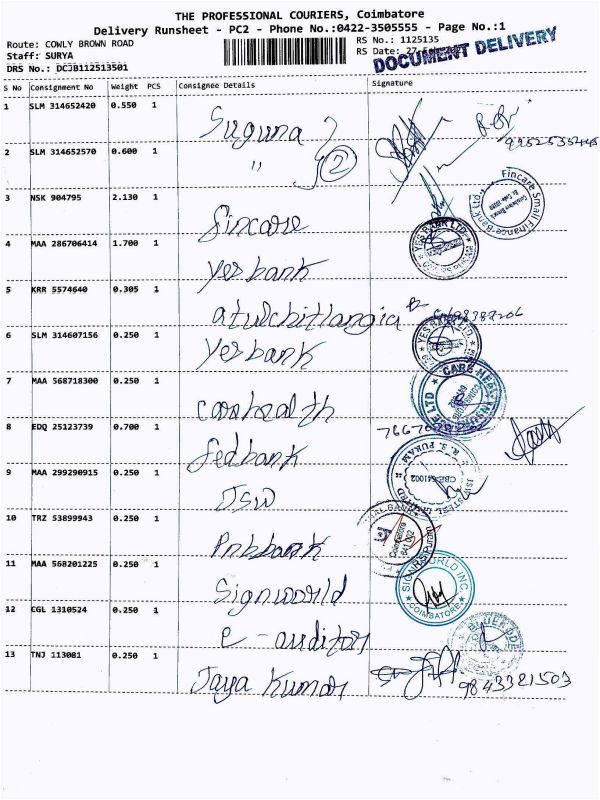 THE PROFESSIONAL COURIERS, Coimbatore
Delivery Runsheet - PC2 - Phone No.:0422-3505555 - Page No.:1
Route: COWLY BROWN ROAD
Staff: SURYA
DRS No.: DCJB112513501
RS No.: 1125135
RS Date: 27
DOCUMENT DELIVERY
S No Consignment No Weight PCS Consignee Details Signature
1 SLM 314652420 0.550 1 Suguna
2 SLM 314652570 0.600 1 " 2
3 NSK 904795 2.130 1 fincare
Fincare Small Finance Bank Ltd.
4 MAA 286706414 1.700 1 yesbank
YES BANK LTD.
5 KRR 5574640 0.305 1 atulchitlangia
6 SLM 314607156 0.250 1 Yesbank
YES BANK LTD.
7 MAA 568718300 0.250 1
CARE HEALTH
8 EDQ 25123739 0.700 1 fedbank
R. S. PURAM
CBE-641002
9 MAA 299290915 0.250 1 JSW
10 TRZ 53899943 0.250 1 Pnbbank
Coimbatore
641 002
11 MAA 568201225 0.250 1 Signworld
SIGNWORLD INC
COIMBATORE
12 CGL 1310524 0.250 1 e-auditors
13 TNJ 113081 0.250 1 Jaya Kumar
9843321503